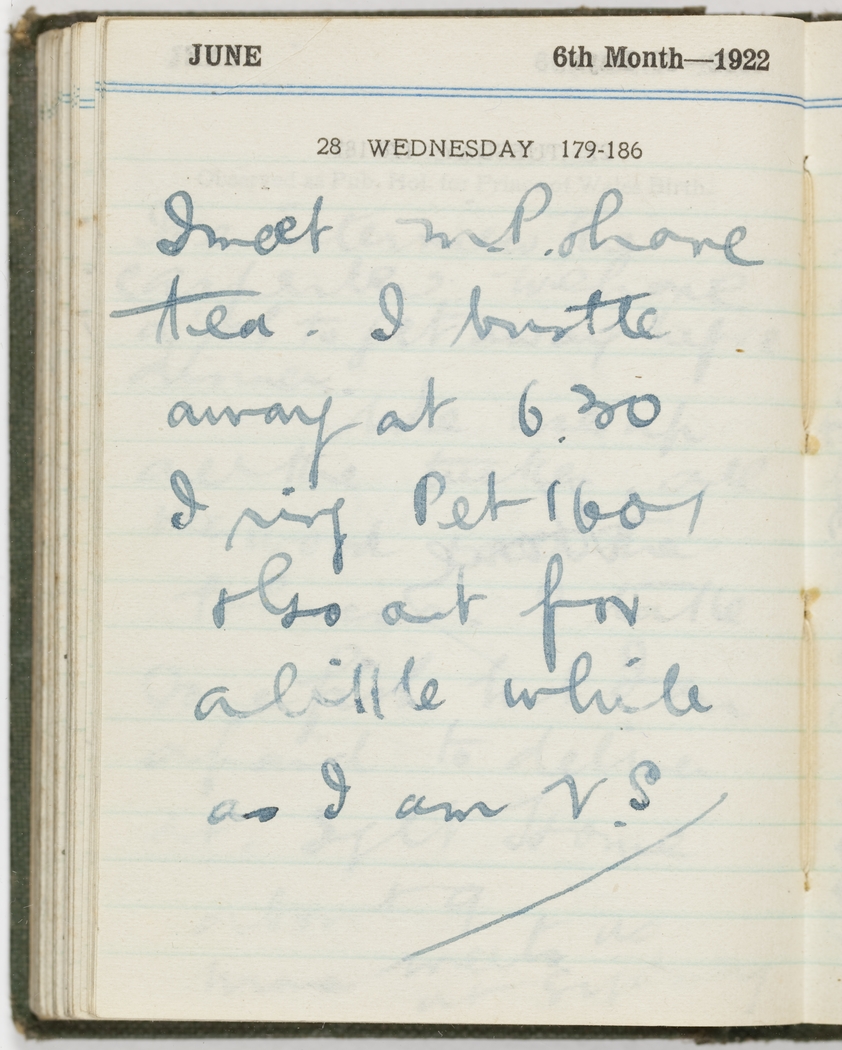 JUNE 6th Month—1922
28 WEDNESDAY 179-186
I meet M.P. & have
tea. I bustle
away at 6.30
I ring Pet 1601
also out for
a little while
as I am V.S